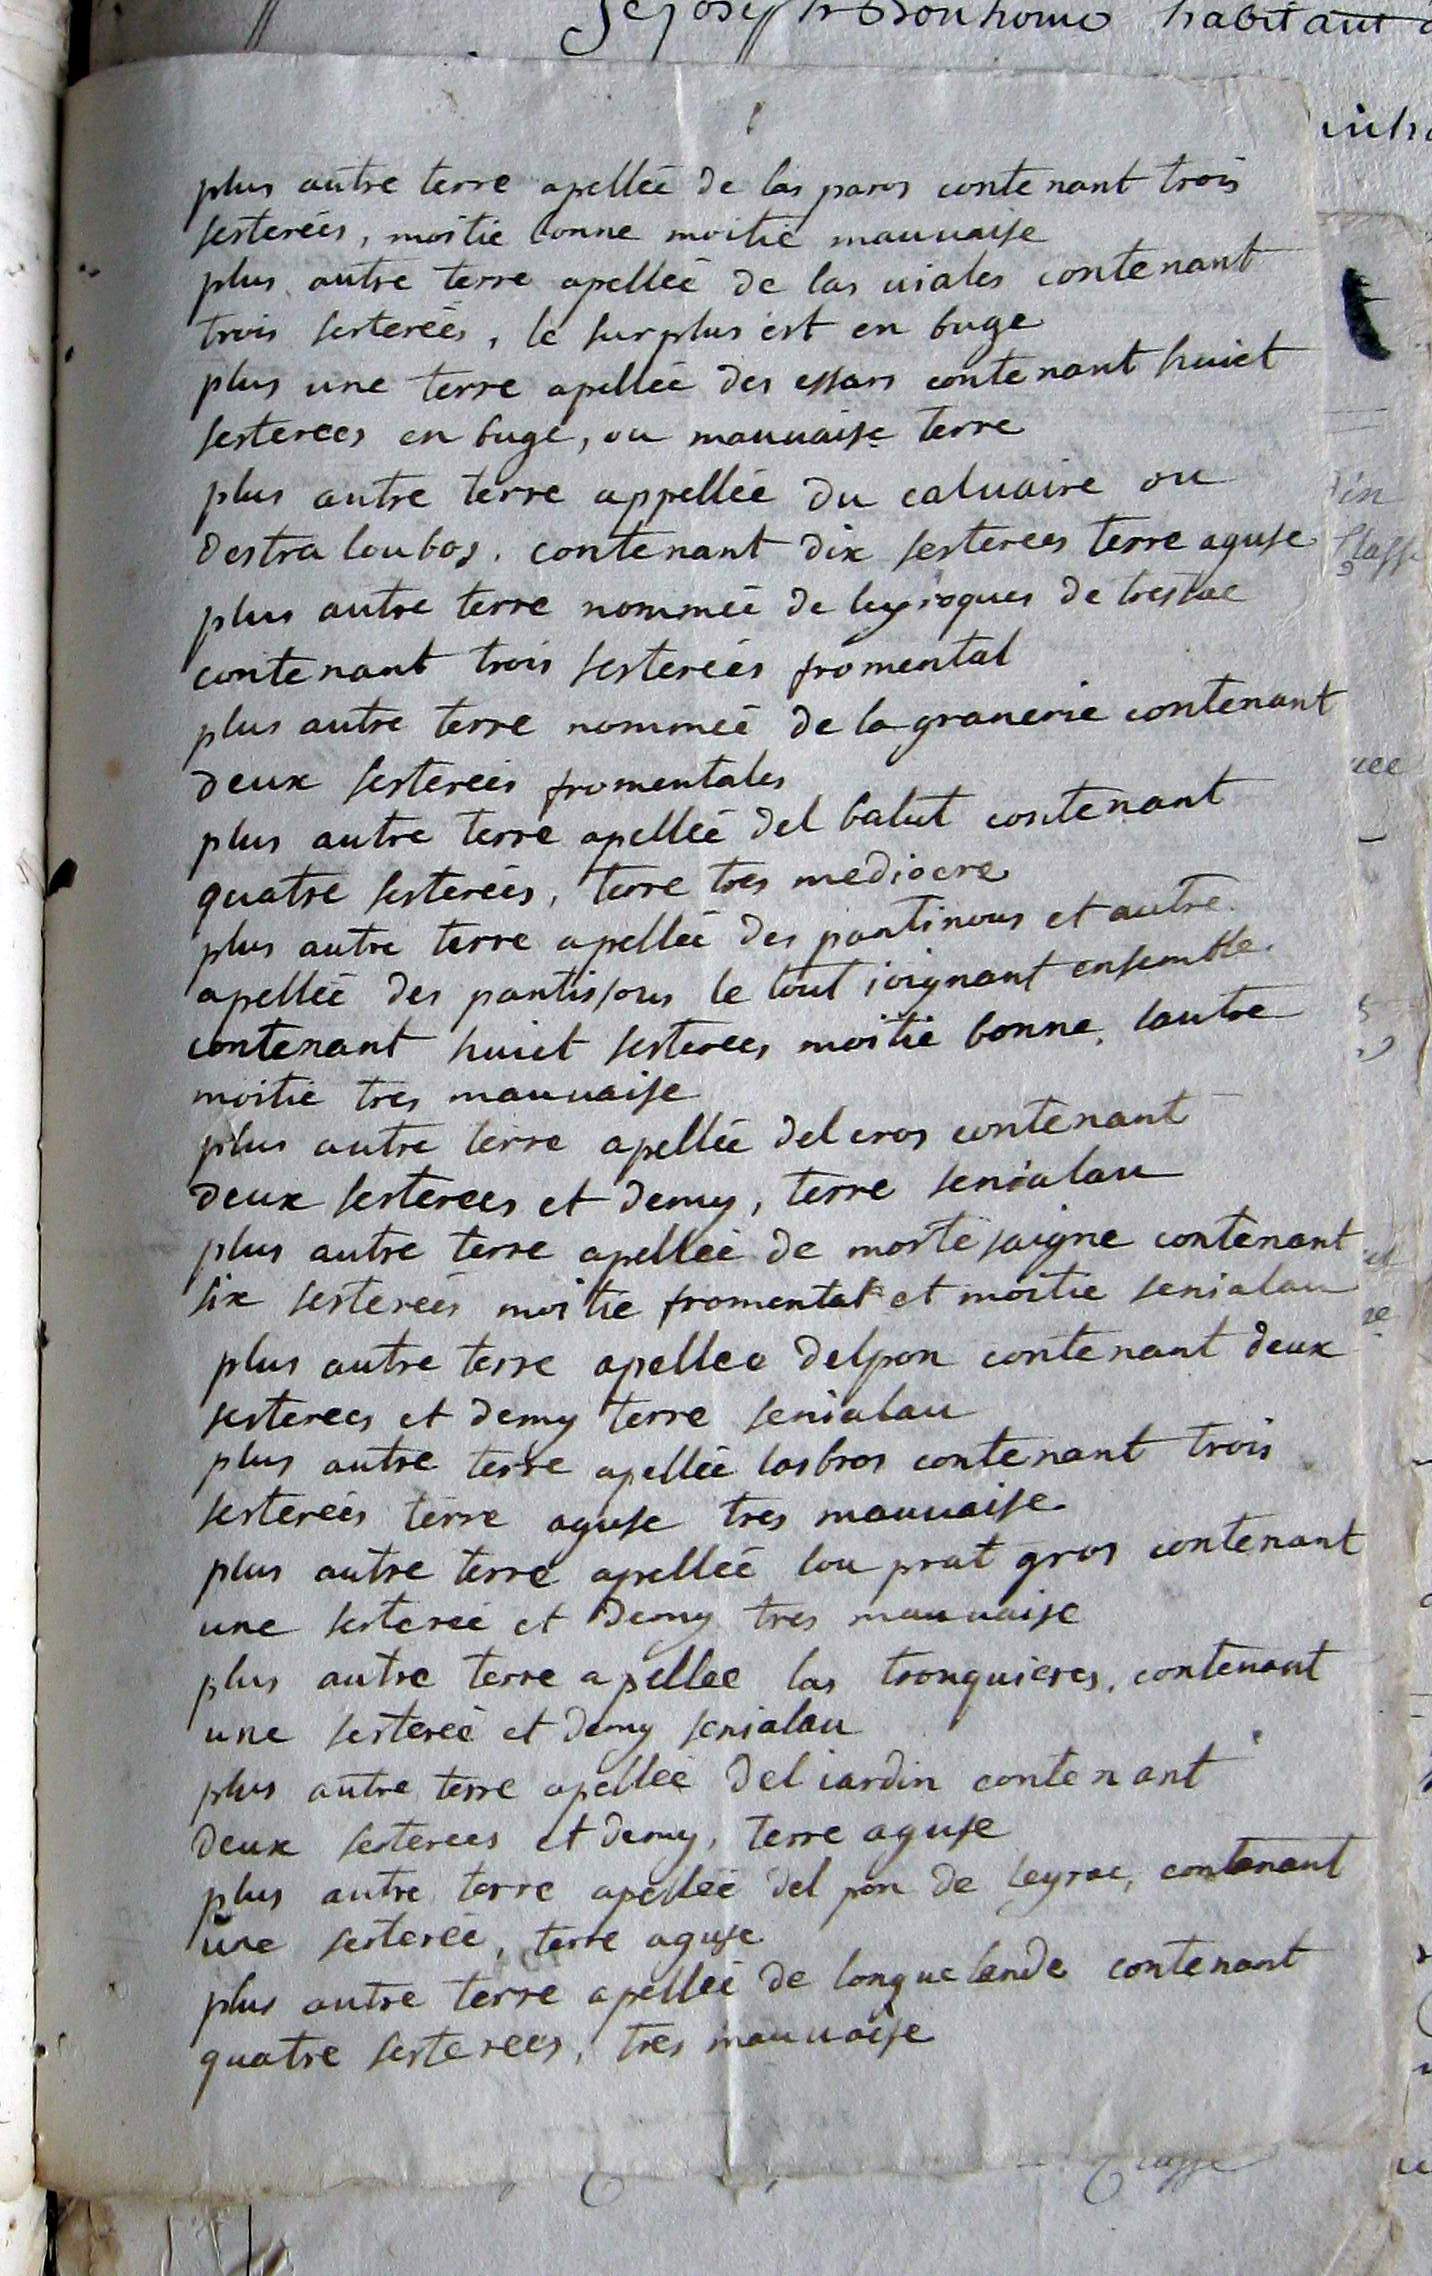 Sr Joseph Bonhome habitant
plus autre terre apelleé de las paros contenant trois
sesterées, moitie bonne moitié mauuaise
plus autre terre apelleé de las uiales contenant
trois sestereés, le surplus est en buge
plus une terre apelleé des essars contenant huict
sesterees en buge, ou mauuaise terre
plus autre terre appelleé du caluaire ou
destra loubos. contenant dix sesterees terre aguse
plus autre terre nommeé de leyroques de trestac
contenant trois sestereés fromental
plus autre terre nommeé de la granerie contenant
deux sestereés fromentales
plus autre terre apelleé del balut contenant
quatre sestereés, terre tres mediocre
plus autre terre apelleé des pantinous et autre
apelleé des pantissous le tout joignant ensemble
contenant huict sesterees moitié bonne, lautre
moitie tres mauuaise
plus autre terre apelleé del cros contenant
deux sesterees et demy, terre senialau
plus autre terre apelleé de morte saigne contenant
six sestereés moitié fromental et moitie senialau
plus autre terre apellee delpon contenant deux
sesterees et demy terre senialau
plus autre terre apelleé las bros contenant trois
sestereés terre aguse tres mauuaise
plus autre terre apelleé lou prat gros contenant
une sestereé et demy tres mauuaise
plus autre terre apellee las tronquieres, contenant
une sestereé et demy senialau
plus autre terre apelleé del iardin contenant
deux sesterees et demy, terre aguse
plus autre terre apelleé del pon de leyrac, contenant
une sestereé, terre aguse
plus autre terre apelleé de longue lande contenant
quatre sesterees, tres mauuaise